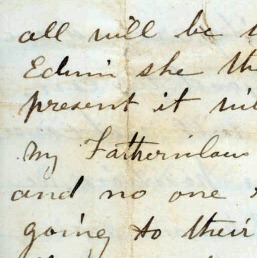 all will be
Edwin she th
present it wi
my Fatherinlaws
and no one
going to their